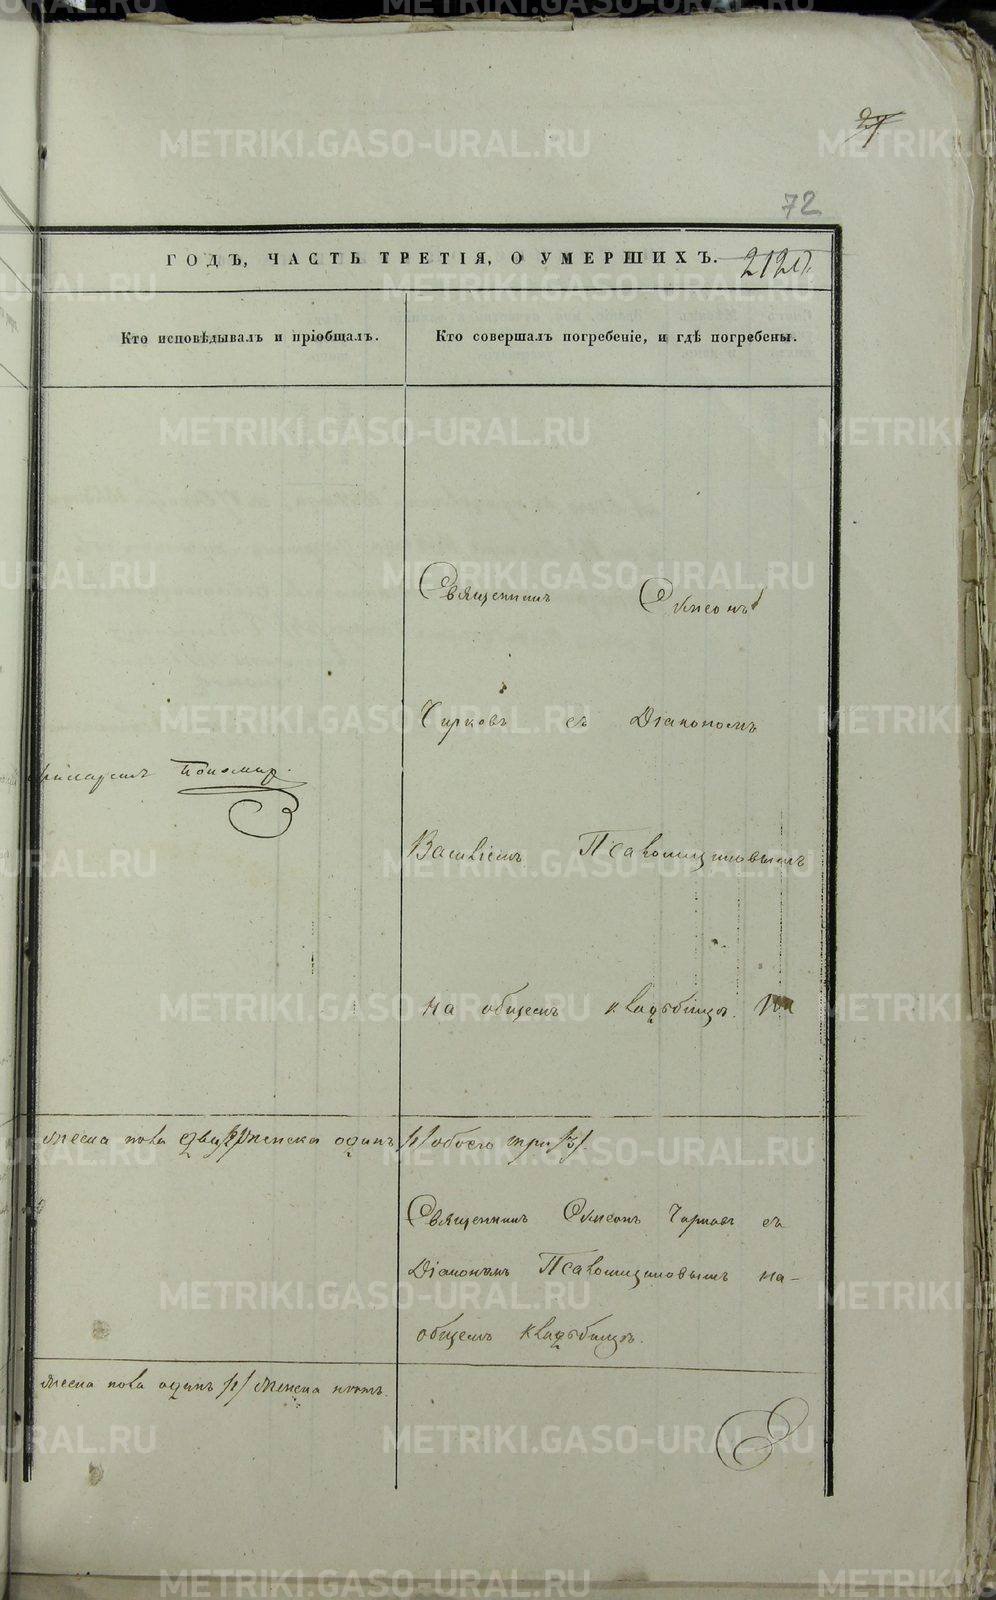 METRIKI.GASO-URAL.RU
72
ГОДЪ, ЧАСТЬ ТРЕТІЯ, О УМЕРШИХЪ. 212
Кто исповѣдывалъ и пріобщалъ.
Кто совершалъ погребеніе, и гдѣ погребены.
Священникъ Симеонъ
Чирковъ съ Діакономъ
Пономар.
Василіемъ Псаломщиковымъ
на общемъ кладбищѣ.
мужеска пола два /2/ женска одинъ /1/ обоего три /3/
Священникъ Симеонъ Чирковъ съ
Діакономъ Псаломщиковымъ на
общемъ кладбищѣ.
мужеска пола одинъ /1/ женска нѣтъ.